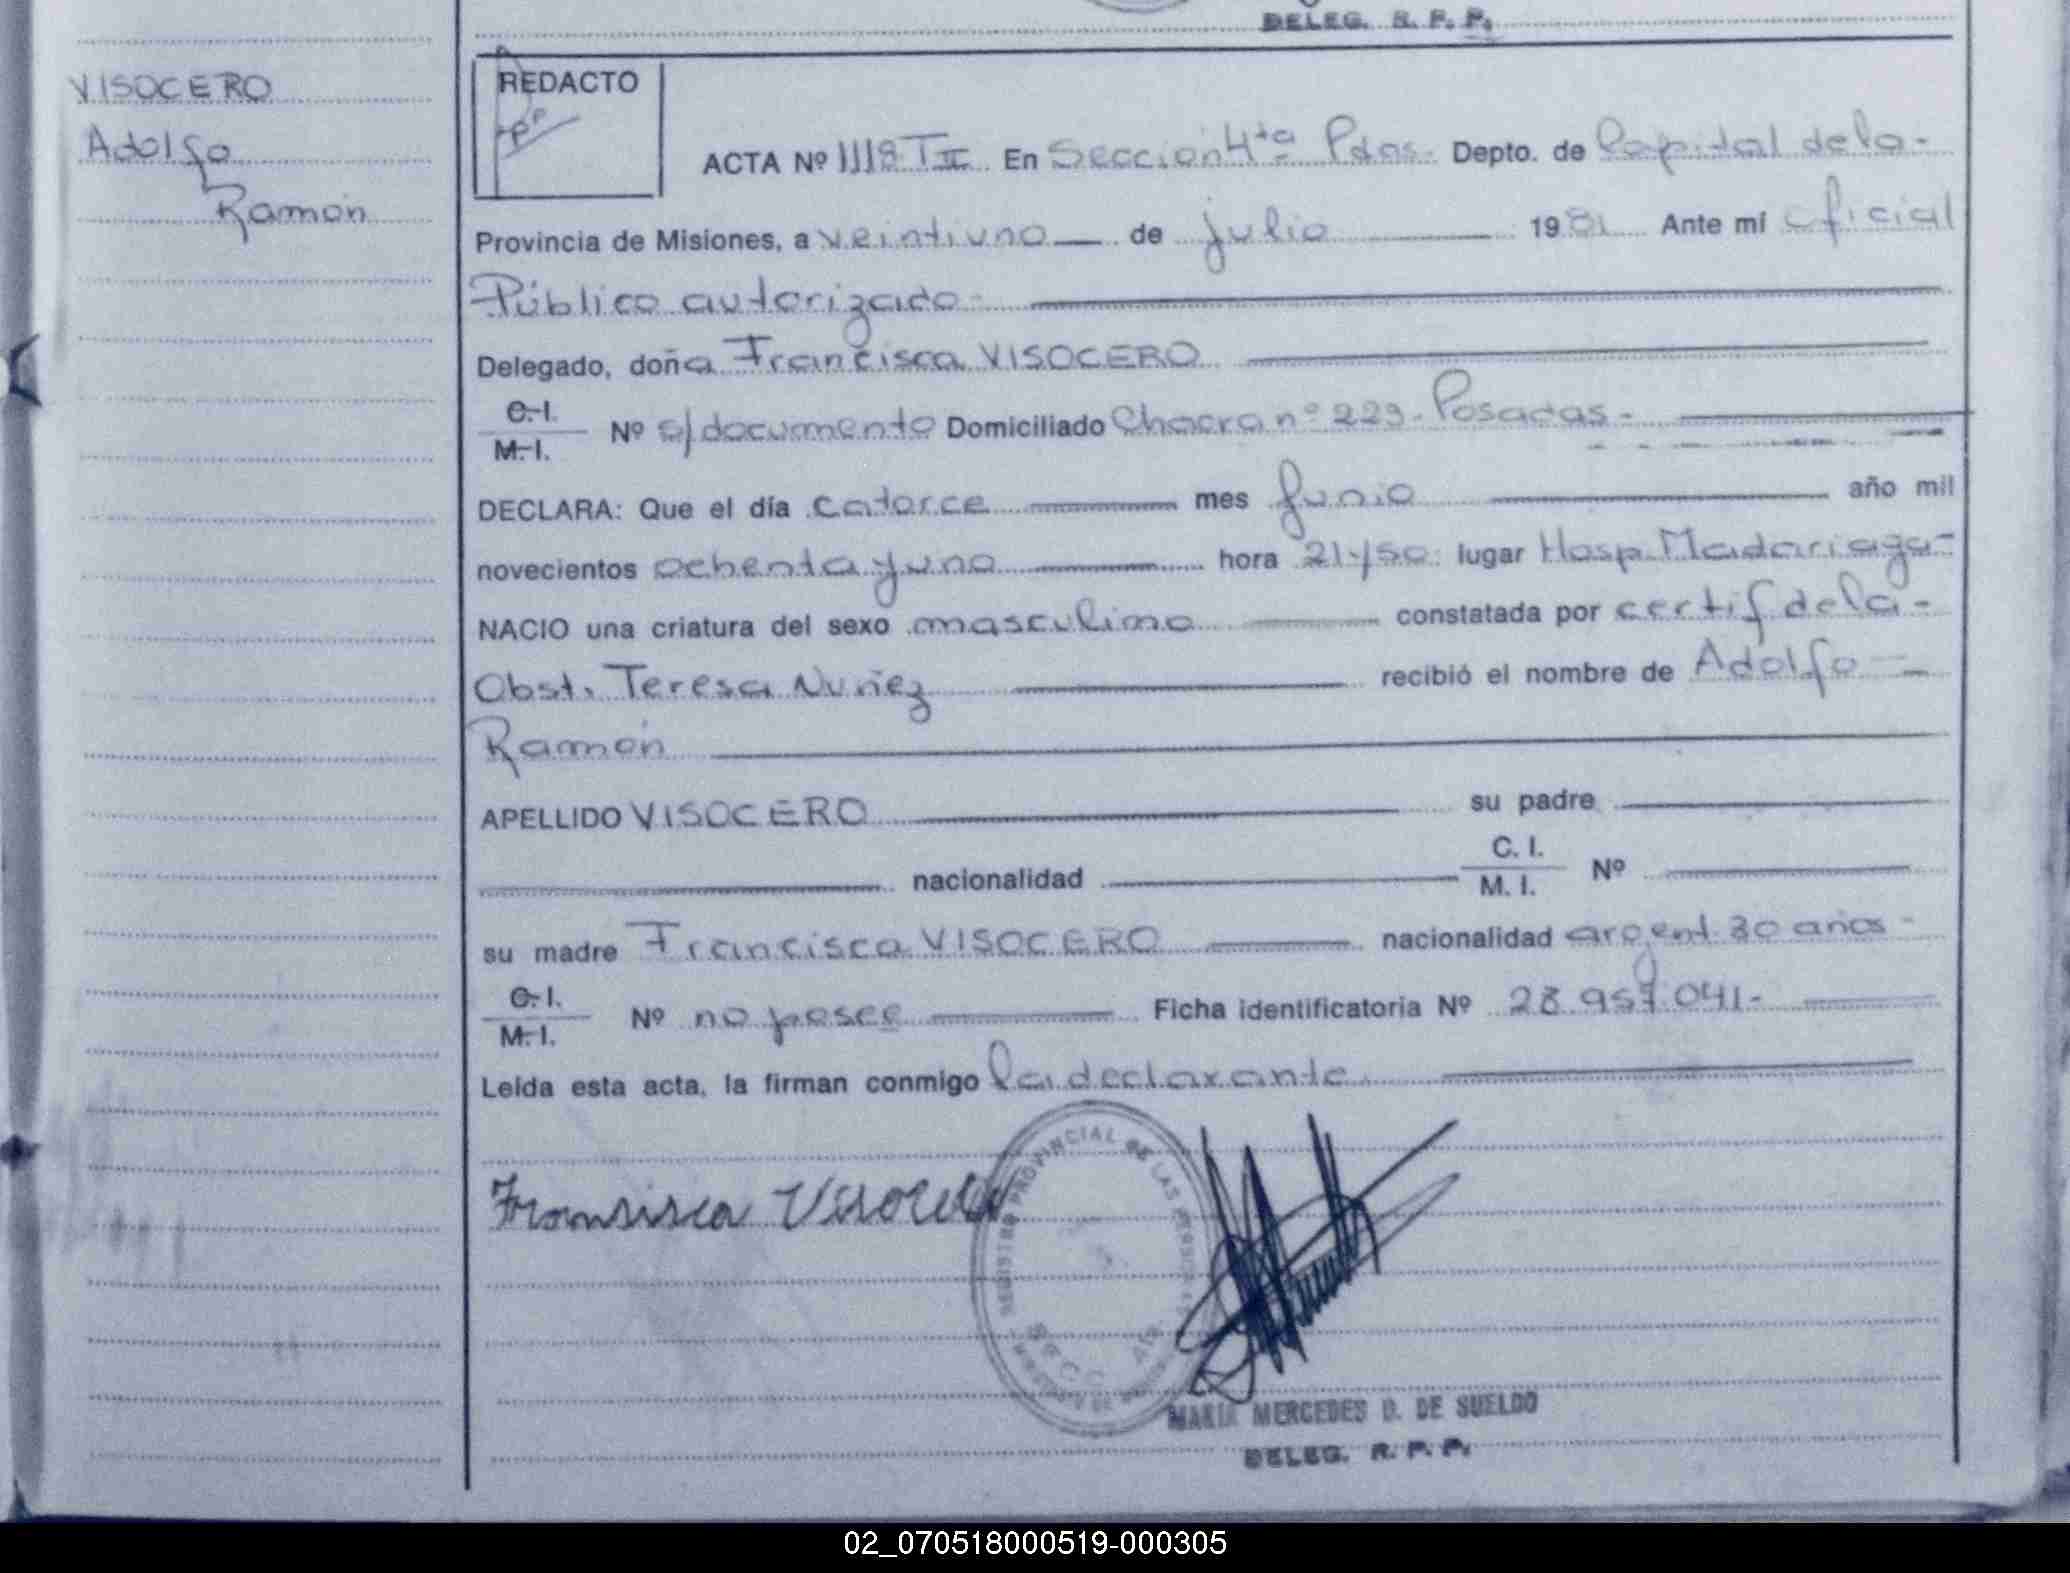 DELEG. R. P. P.
VISOCERO
Adolfo
Ramón
REDACTO
PP
ACTA Nº 1118 T II En Sección 4ta Pdas. Depto. de Capital de la-
Provincia de Misiones, a veintiuno de julio 1981 Ante mí Oficial
Público autorizado-
Delegado, doña Francisca VISOCERO
C.I.
M.I. Nº s/documento Domiciliado Chacra nº 229- Posadas-
DECLARA: Que el día catorce mes Junio año mil
novecientos ochenta y uno hora 21y50 lugar Hosp. Madariaga-
NACIO una criatura del sexo masculino constatada por certif de la-
Obst. Teresa Nuñez recibió el nombre de Adolfo
Ramón
APELLIDO VISOCERO su padre
nacionalidad C. I.
M. I. Nº
su madre Francisca VISOCERO nacionalidad argent. 30 años-
C.I.
M.I. Nº no posee Ficha identificatoria Nº 28.957.041-
Leída esta acta, la firman conmigo la declarante
Fransisca
REGISTRO PROVINCIAL DE LAS PERSONAS
MARIA MERCEDES D. DE SUELDO
DELEG. R. P. P.
02_070518000519-000305